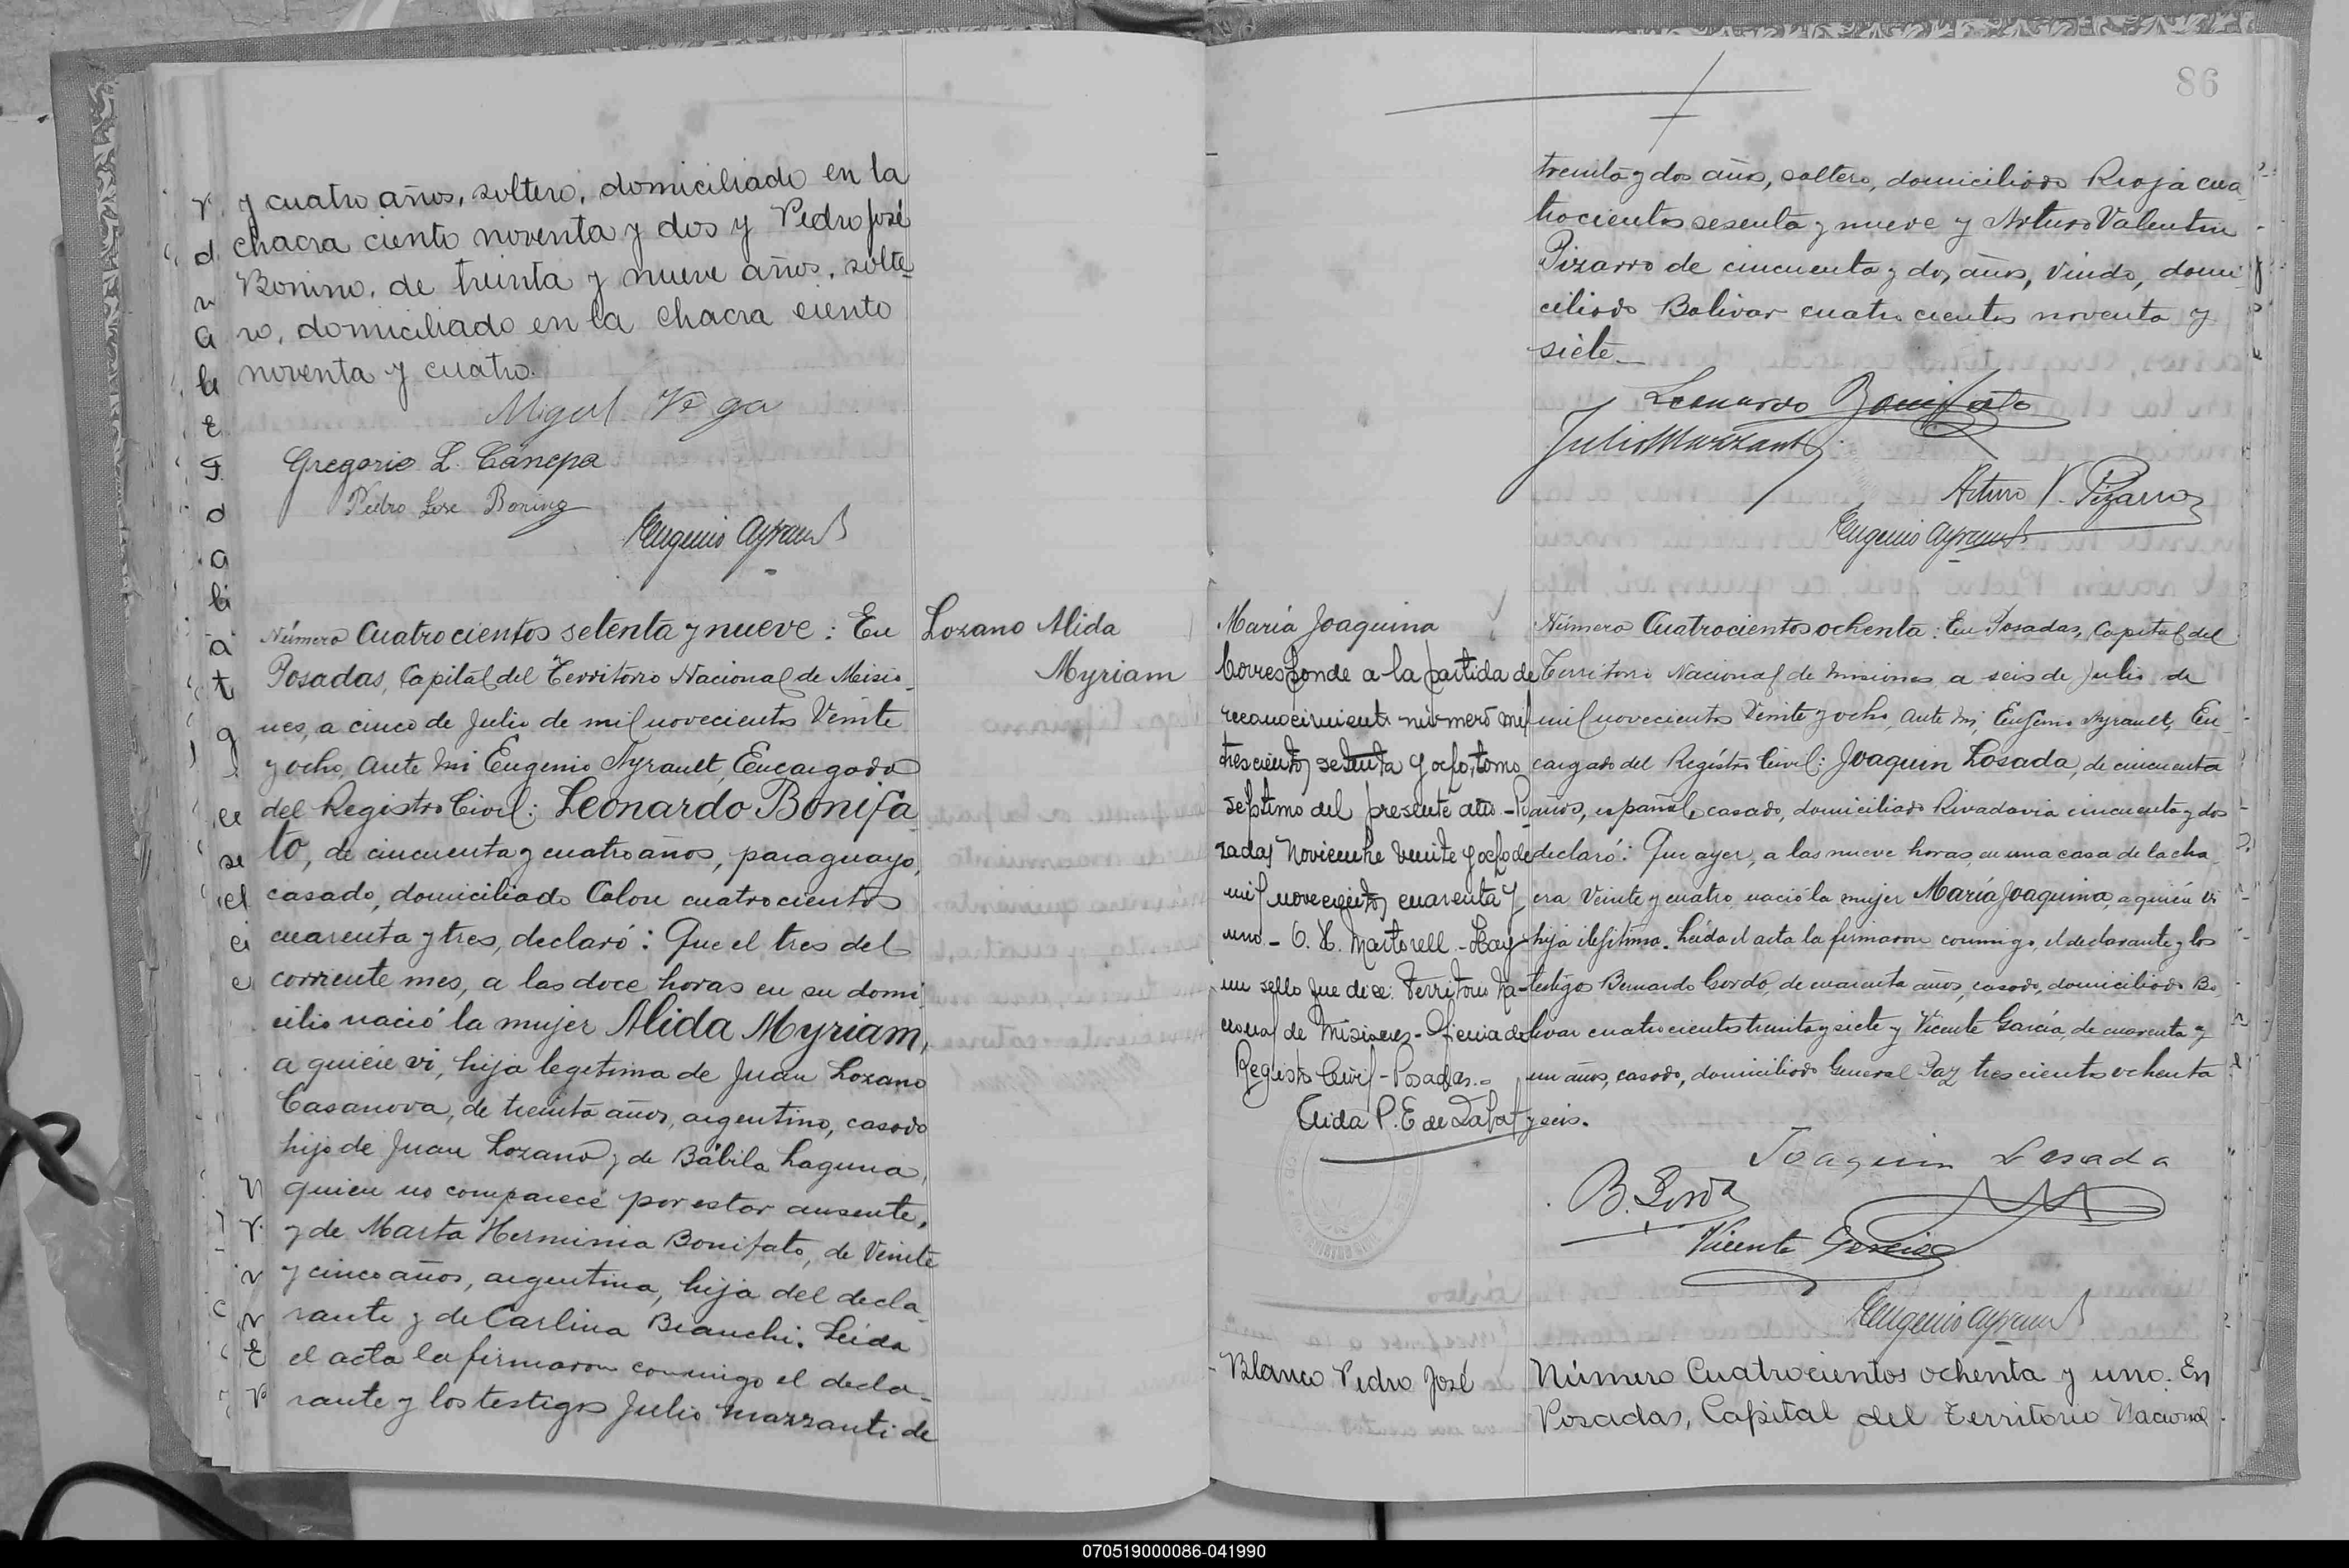 y cuatro años, soltero, domiciliado en la
chacra ciento noventa y dos y Pedro José
Bonino, de treinta y nueve años, solte-
ro, domiciliado en la chacra ciento
noventa y cuatro.
Miguel Vega
Gregorio L. Cánepa
Pedro Jose Bonino
Eugenio Ayrault
Número Cuatrocientos setenta y nueve: En
Posadas, Capital del Territorio Nacional de Misio-
nes, a cinco de Julio de mil novecientos Veinte
y ocho, ante mi Eugenio Ayrault, Encargado
del Registro Civil: Leonardo Bonifa-
to, de cincuenta y cuatro años, paraguayo,
casado, domiciliado Colon cuatrocientos
cuarenta y tres, declaró: Que el tres del
corriente mes, a las doce horas en su domi-
cilio nació la mujer Alida Myriam,
a quien vi, hija legitima de Juan Lozano
Casanova, de treinta años, argentino, casado
hijo de Juan Lozano y de Bábila Laguna,
quien no comparece por estar ausente,
y de Marta Herminia Bonifato, de Veinte
y cinco años, argentina, hija del decla-
rante y de Carlina Bianchi. Leída
el acta la firmaron conmigo el decla-
rante y los testigos Julio Mazzanti de
Lozano Alida
Myriam
86
treinta y dos años, soltero, domiciliado Rioja cua-
trocientos sesenta y nueve y Arturo Valentin
Pizarro de cincuenta y dos años, viudo, domi-
ciliado Bolivar cuatrocientos noventa y
siete
Leonardo Bonifato
Julio Mazzanti
Arturo V. Pizarro
Eugenio Ayrault
María Joaquina
Corresponde a la partida de
reconocimiento número mil
trescientos setenta y ocho, tomo
séptimo del presente año - Po
sadas Noviembre veinte y ocho de
mil novecientos cuarenta y
uno - O. H. Martorell - Hay
un sello que dice: Territorio Na-
cional de Misiones - Oficina de
Registro Civil - Posadas.
Número Cuatrocientos ochenta: En Posadas, Capital del
Territorio Nacional de Misiones a seis de Julio de
mil novecientos Veinte y ocho, ante mi, Eugenio Ayrault, En-
cargado del Registro Civil: Joaquin Losada, de cincuenta
años, español, casado, domiciliado Rivadavia cincuenta y dos
declaró: Que ayer, a las nueve horas, en una casa de la cha-
cra Veinte y cuatro nació la mujer María Joaquina, a quien vi
hija ilegítima. Leída el acta la firmaron conmigo, el declarante y los
testigos Bernardo Gordo, de cuarenta años, casado, domiciliado Bo-
livar cuatrocientos treinta y siete y Vicente García, de cuarenta y
un años, casado, domiciliado General Paz trescientos ochenta
y seis.
Joaquin Losada
B. Gordo
Vicente Garcia
Eugenio Ayrault
Blanco Pedro José
Número Cuatrocientos ochenta y uno. En
Posadas, Capital del Territorio Nacional
070519000086-041990